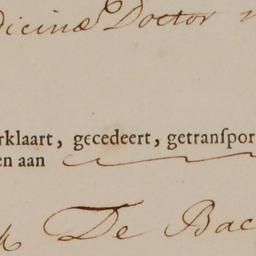 dicinæ Doctor
rklaart, gecedeert, getranſpor
en aan
De Bac